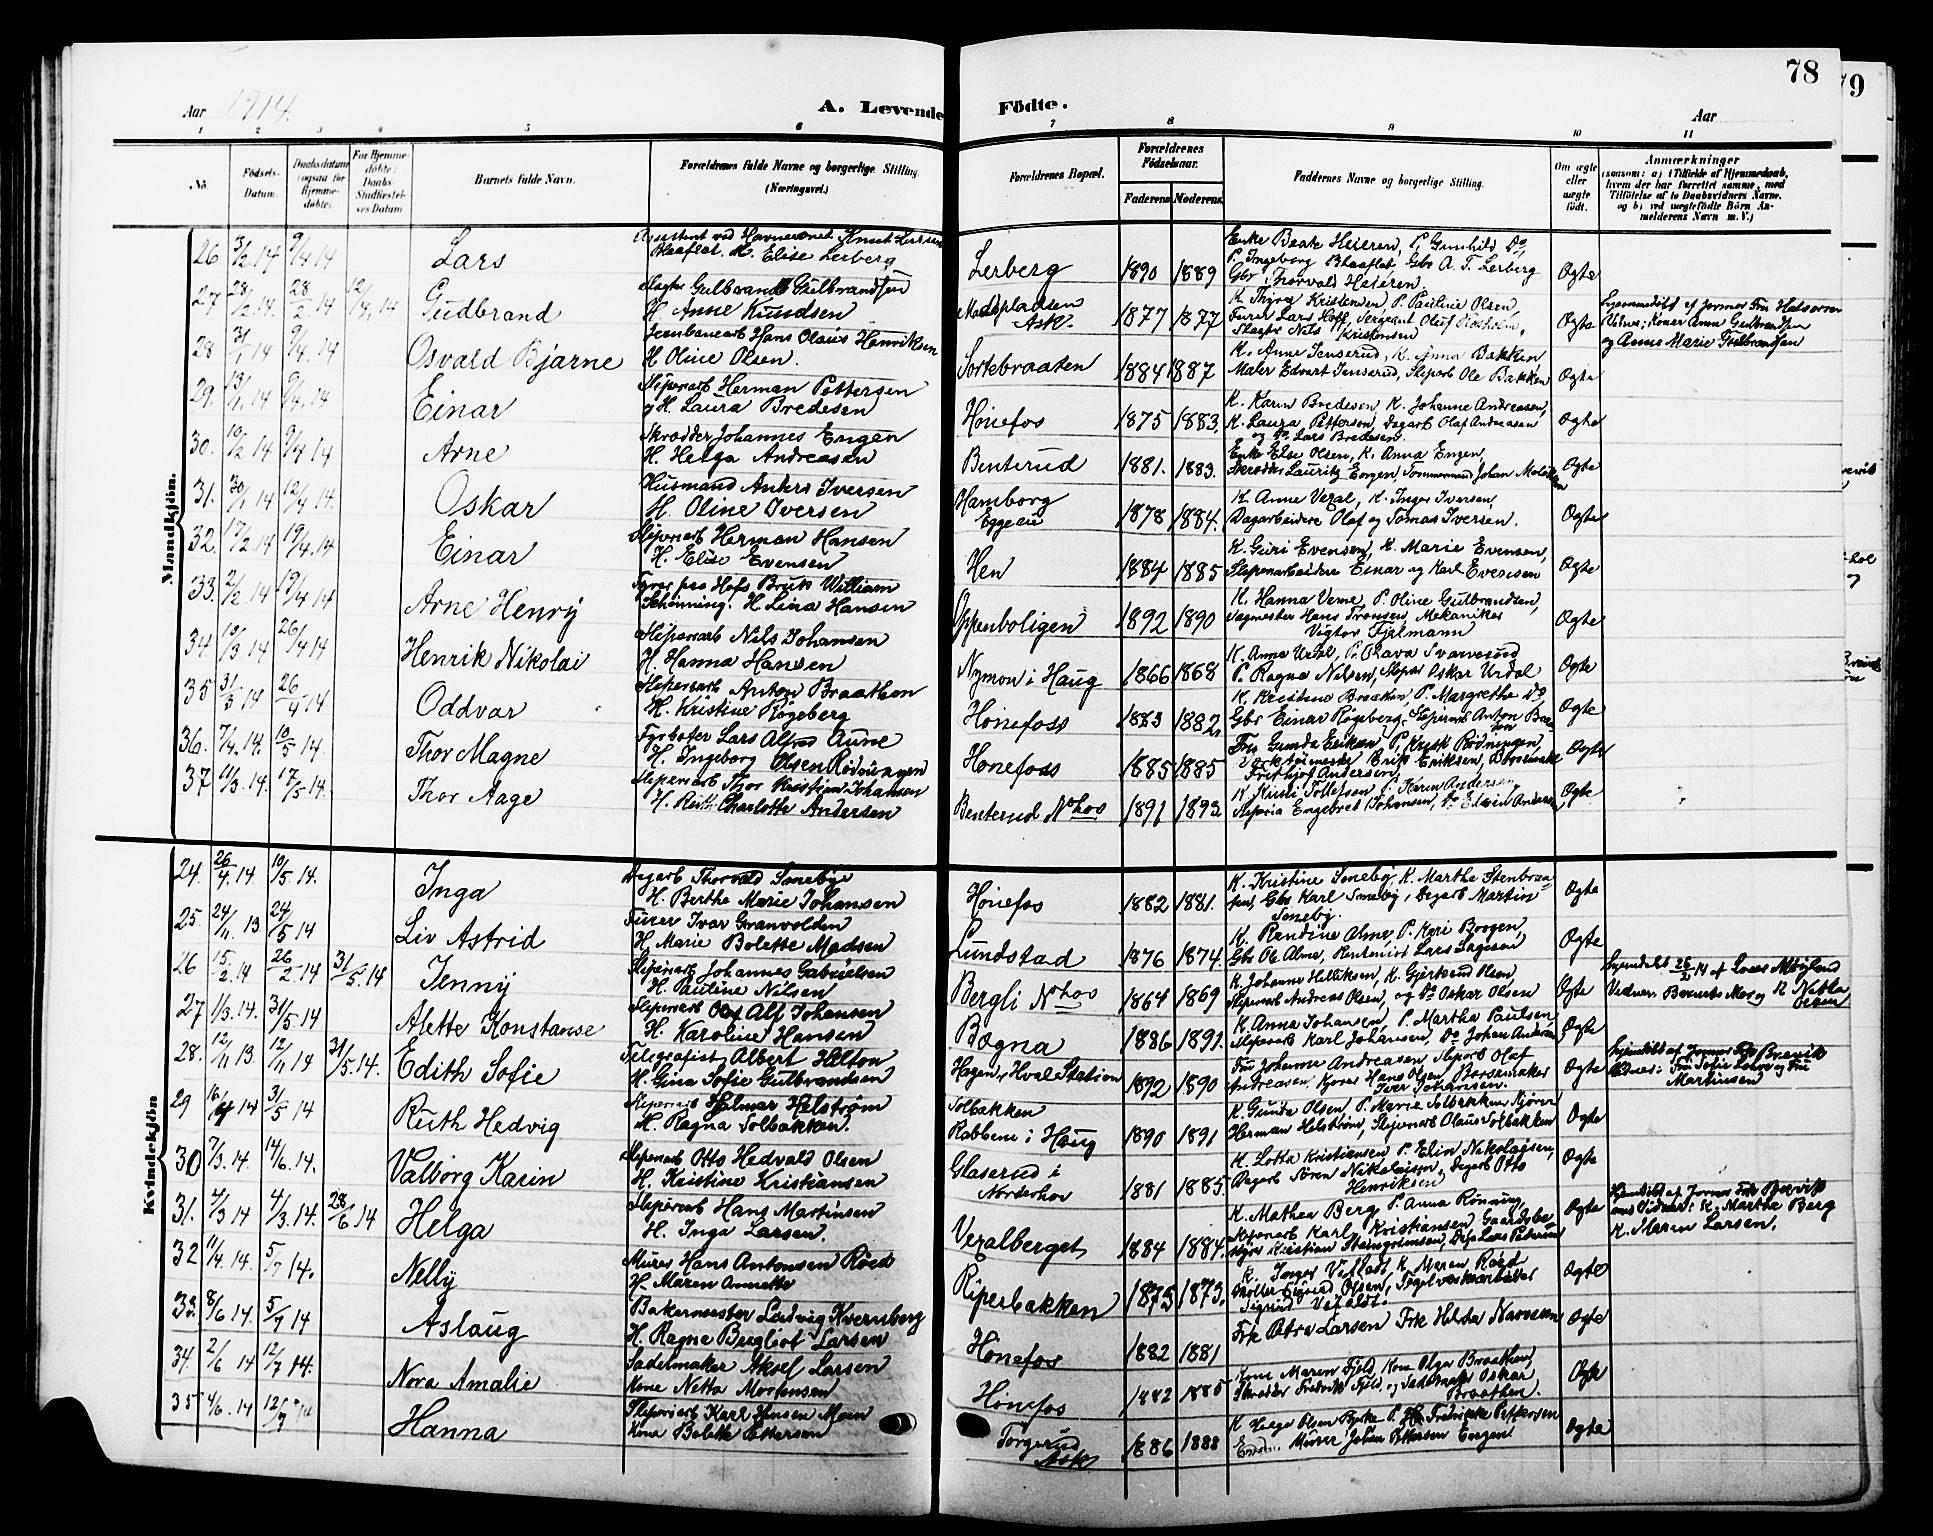 78
79
Aar 1914.
A. Levende Födte.
Aar
1 2 3 4 5 6 7 8 9 10 11
No.
Födsels-Datum.
Daabsdatum (ogsaa for Hjemme-døbte).
For Hjemme-døbte: Daabs-Stadfæstel-ses Datum
Barnets fulde Navn.
Forældrenes fulde Navne og borgerlige Stilling.
(Næringsvei.)
Forældrenes Bopæl.
Forældrenes Födselsaar.
Faderens Moderens
Faddernes Navne og borgerlige Stilling.
Om ægte eller uægte födt.
Anmærkninger
(saasom: a) i Tilfælde af Hjemmedaab, hvem der har forrettet samme, med Tilföielse af to Daabsvidners Navne. og b) ved uægtefödte Börn An-melderens Navn m. V.)
Mandkjön.
26 3/2 14 9/4 14 Lars Assistent ved Havnevæsnet Knut Larsen Blaaflat. H. Elise Lerberg Lerberg 1890 1889 Enke Beate Heieren, P. Gunhild Do, P. Ingeborg Blaaflat, Gbr A. T. Lerberg Gbr Thorvald Heieren. Ægte
27 28/2 14 28/2 14 12/4 14 Gudbrand Slagter Gulbrand Gulbrandsen H. Anne Knudsen Modspladsen Ask. 1877 1877 K. Thyra Kristensen P. Pauline Olsen, Furer Lars Hoff, Sergeant Oluf Roxholm, Slagter Nils Kristensen Ægte Hjemmedöbt af Jormor Fru Halvorsen Vidner; Koner Anne Gulbrandsen og Anne Marie Gulbrandsen
28 31/1 14 9/4 14 Osvald Bjarne Jernbanearb Hans Olaus Henriksen H. Oline Olsen. Sortebraaten 1884 1887 K. Anne Jenserud, K. Anna Bakken Maler Edvart Jenserud, Sliparb Ole Bakken Ægte
29. 13/1 14 9/4 14 Einar Sliperarb Herman Pettersen og H. Laura Bredesen Hønefos 1875 1883. K. Karin Bredesen, K. Johanne Andreasen, K. Laura Pettersen, Dagarb Olaf Andreasen og Do Lars Bredesen. Ægte
30. 10/2 14 9/4 14 Arne Skrædder Johannes Engen H. Helga Andreasen Benterud 1881. 1883. Enke Else Olsen, K. Anna Engen, Skrædder Lauritz Engen, Tømmermand Johan Ægte
31. 30/1 14 12/4 14. Oskar Husmand Anders Iversen H. Oline Iversen Hamborg Eggeeie 1878 1884. K. Anne Vezal, K. Inger Iversen, Dagarbeidere Olaf og Tomas Iversen. Ægte
32. 17/2 14 19/4 14 Einar Sliperarb Herman Hansen H. Elise Evensen Hen 1884 1885 K. Guri Evensen, K. Marie Evensen, Sliperarbeidere Einar og Karl Evensen Ægte
33. 2/2 14 19/4 14 Arne Henry Fyrer paa Hofs Bruk William Schönning. H. Lina Hansen Oppenboligen 1892 1890 K. Hanna Verne, P. Oline Gulbrandsen, Sagmester Hans Tronsen, Mekaniker Vigtor Fjelmann Ægte
34 10/3 14 26/4 14 Henrik Nikolai Sliperarb Nils Johansen H. Hanna Hansen Nymon i Haug 1866 1868 K. Anna Urdal, P. Olava Svarverud P. Ragna Nilsen, Sliper Oskar Urdal Ægte
35 31/3 14 26/4 14. Oddvar Sliperarb Anton Braathen H. Kristine Rögeberg Hønefoss 1883 1882 K. Kristine Braaken, P. Margrethe Do Gbr Einar Rögeberg, Sliperarb Anton Ægte
36. 7/4. 14. 10/5 14. Thor Magne Fyrböter Lars Alfred Aune H. Ingeborg Olsen Rödningen Hønefoss 1885 1885 Fru Gunda Eriksen P. Kristk Rödningen, Verktøimester Erik Eriksen, Börsemaker Frithjof Andersen, Ægte
37 11/3. 14. 17/5 14. Thor Aage Sliperarb Thor Kristian Johansen H. Ruth Charlotte Andersen Benterud Nhov 1891 1893 K. Kristi Tollefsen P. Karen Andersen, Sliperia Engebret Johansen, Do Edvin Ægte
Kvindekjön
24. 26/4. 14. 10/5. 14. Inga Dagarb Thorvald Smeby H. Berthe Marie Johansen Hønefos 1882 1881. K. Kristine Smeby, K. Marthe Stenbraa-ten, Gbr Karl Smeby, Dagarb Martin Smeby. Ægte
25. 24/11. 13 24/5 14 Liv Astrid Furer Ivar Granvolden H. Marie Bolette Madsen Lundstad 1876 1874. K. Randine Alme, P. Kari Borgen, Gbr Ole Alme, Rentenist Lars Lagesen Ægte
26 15/2. 14 26/2 14 31/5. 14 Jenny Sliperarb Johannes Gabrielsen H. Pauline Nilsen Bergli Nhov 1864 1869 K. Johanne Helliksen, K. Gjertrud Olsen Sliperarb Andreas Olsen, og Do Oskar Olsen Ægte Hjemdöbt 26/2 14 af Vidner. Barnets Mor og K.
27 1/3. 14. 31/5 14 Alette Konstanse Sliperarb Alf Johansen H. Karoline Hansen Bægna 1886 1891. K. Anna Johansen, P. Martha Paulsen Sliperarb Karl Johansen, Do Johan Ægte
28. 12/11 13. 12/11 14 31/5. 14. Edith Sofie Telegrafist Albert Hilton H. Gina Sofie Gulbrandsen Hagen, Hval Station 1892 1890 Fru Johanne Andreasen, Sliparb Olaf Andreasen, Kjører Hans Olsen, Börsemaker Iver Johansen. Ægte Hjemdöbt af Jormor Frk Brevik Vidner: Fru Sofie og Fru Martinsen
29 16/4 14 31/5 14 Ruth Hedvig Sliperarb Halmar Helström H. Ragna Solbakken. Solbakken Rabbene i Haug 1890 1891 K. Gunda Olsen, P. Marie Solbakken, Kjörer Herman Helström, Sliperarb Olaus Solbakken Ægte
30 7/3. 14. 14/6. 14. Valborg Karin Sliperarb Otto Hedvald Olsen H. Kristine Kristiansen Glaserud i Norderhov 1881 1885. K. Lotta Kristiansen P. Elin Nikolaisen, Dagarb Sören Nikolaisen, Dagarb Otto Henriksen Ægte
31. 4/3 14 4/3. 14. 28/6 14 Helga Sliperarb Hans Martinsen H. Inga Larsen. Vezalberget 1884 1884. K. Mathea Berg P. Anna Rönning, Sliperarb Karl Kristiansen Gaardsbe-styrer Kristian Steingrimsen, Lars Ægte Hjemdöbt af Jormor Frk Brevik Vidner: K. Marthe Berg K. Maren Larsen.
32 11/4. 14. 5/7 14. Nelly Murer Hans Antonsen Röed H. Maren Annette Riperbakken 1875 1873. K. Inger K. Maren Röed Ægte
33. 8/6 14 5/7 14 Aslaug Bakermester Ludvig Kvernberg H. Ragna Bergliot Larsen Hønefos 1882 1881 Frk Petra Larsen Frk Hilda Ægte
34. 2/6 14 12/7 14. Nora Amalie Sadelmaker Aksel Larsen Kone Netta Mortensen Hønefos 1882 1885 Kone Maren Fjeld, Kone Olga Braathen, Skrædder Fredrik Fjeld, og Sadelmaker Oskar Braathen. Ægte
35 4/6. 14 12/7 14 Hanna Sliperarb Karl Hansen Moen Kona Bolette Pettersen Torgerud Ask 1886 1888 K. Helga Olsen P. Fredrikke Pettersen Murer Johan Pettersen Engen Ægte